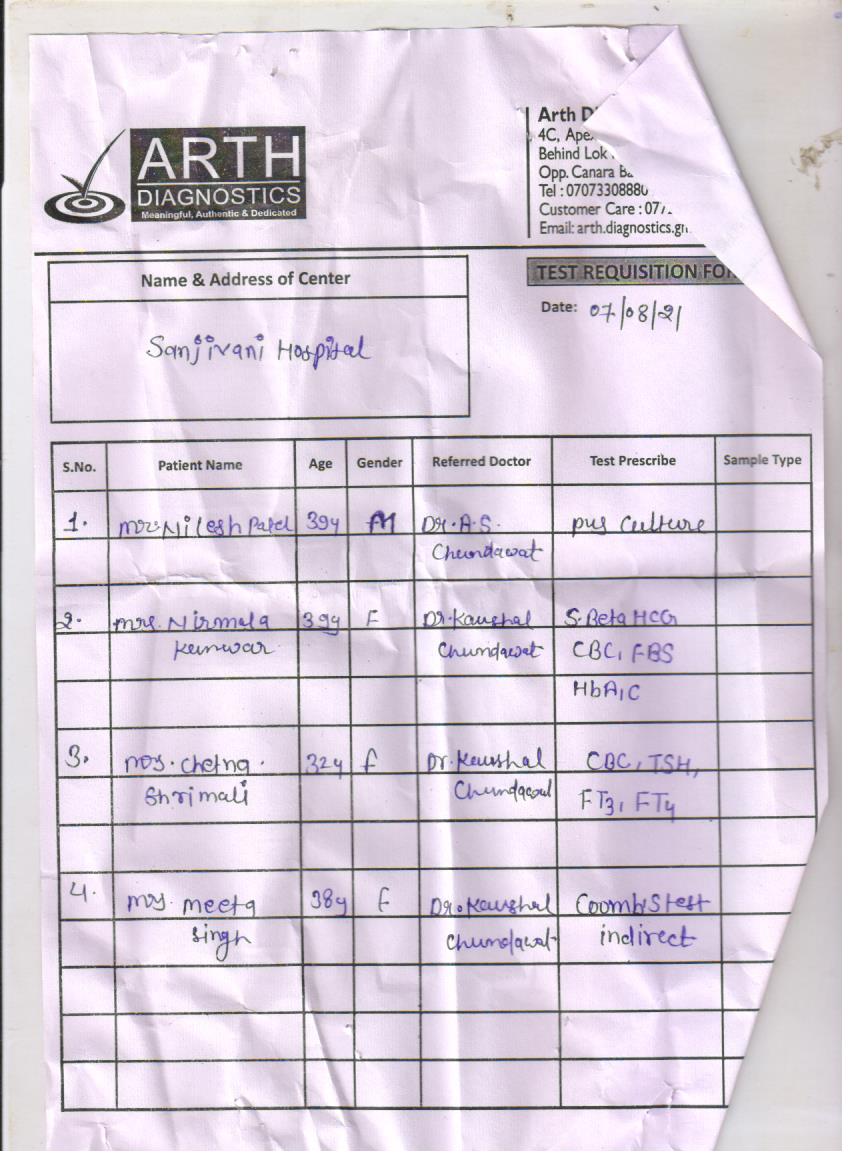 ARTH
DIAGNOSTICS
Meaningful, Authentic & Dedicated
Arth
4C,
Behind Lok
Opp. Canara
Tel : 07073308880
Customer Care :
Email: arth.diagnostics
TEST REQUISITION
Date: 07/08/21
Name & Address of Center
Sanjivani Hospital
S.No. Patient Name Age Gender Referred Doctor Test Prescribe Sample Type
1. Mr. Nilesh Patel 39y M Dr. A.S. pus culture
Chundawat
2. Mrs. Nirmala 39y F Dr. Kaushal S. Beta HCG
Kunwar Chundawat CBC, FBS
HbA1C
3. Mrs. Chetna 32y F Dr. Kaushal CBC, TSH,
Shrimali Chundawat FT3, FT4
4. Mrs. Meeta 38y F Dr. Kaushal Coombs test
Singh Chundawat indirect